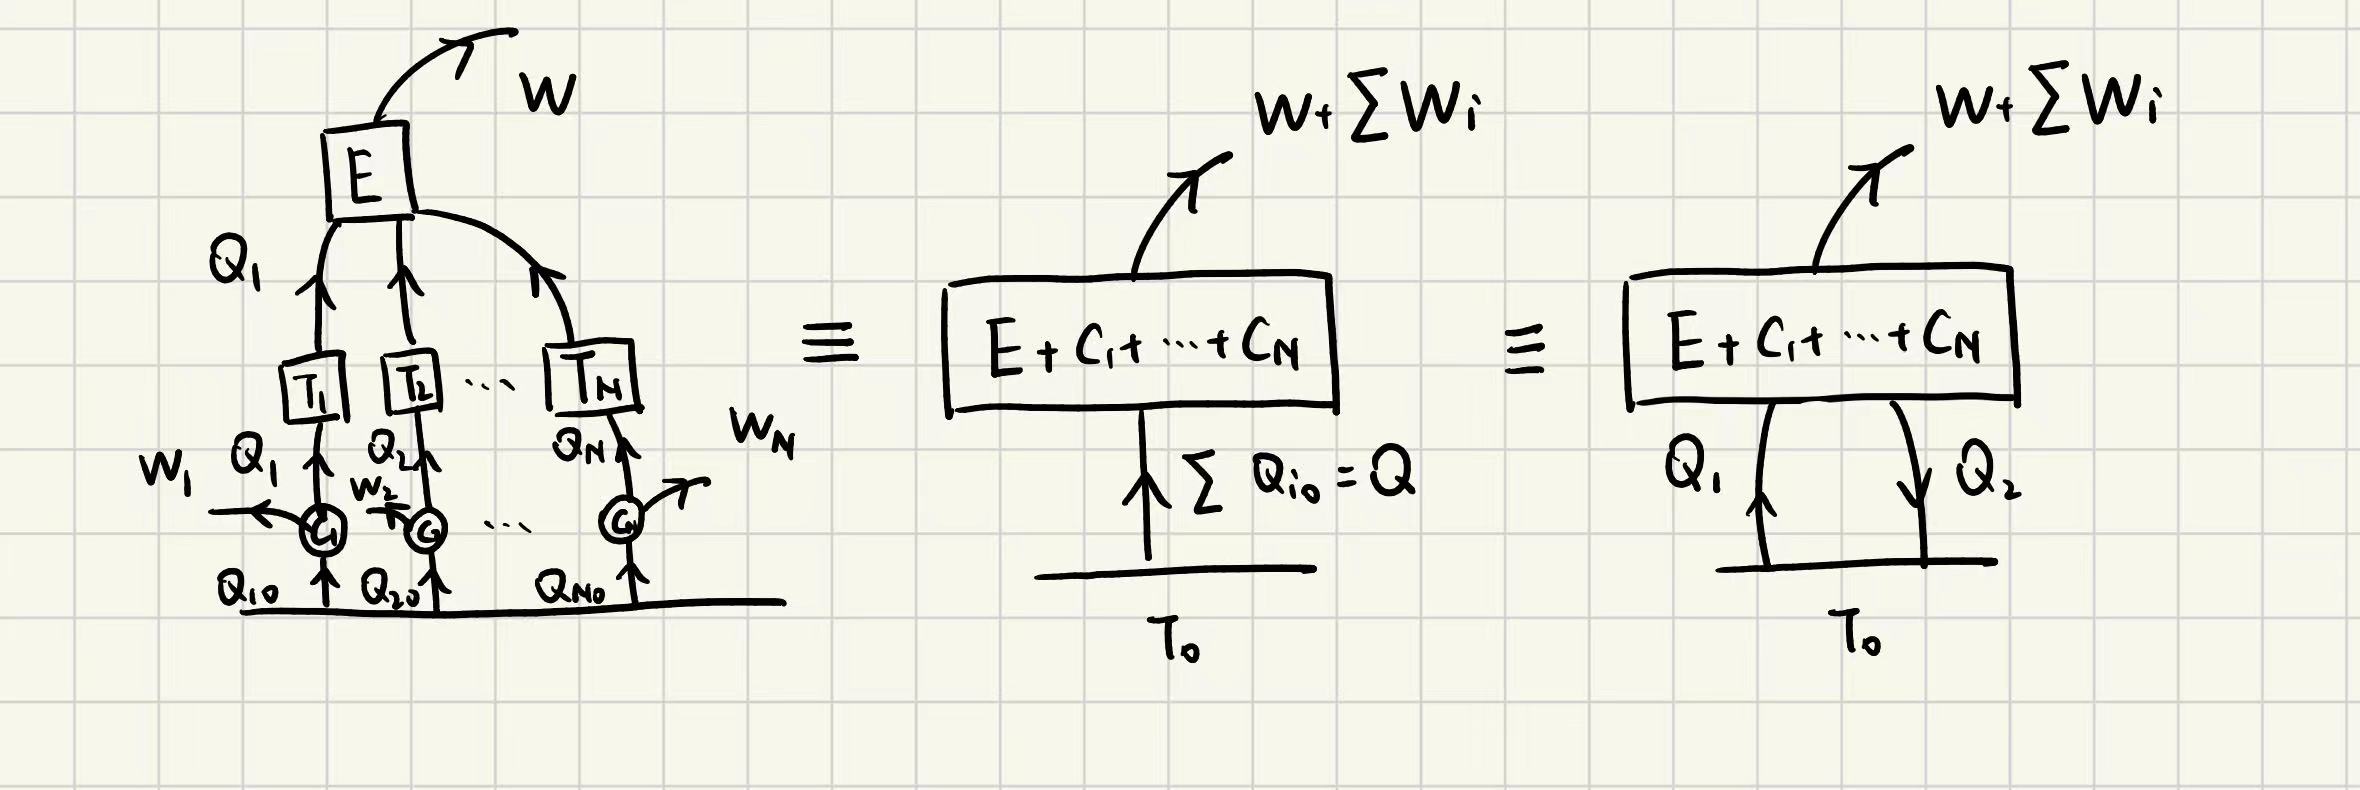 W
E
Q₁
T₁ T₂ ... T_N
W₁ Q₁ Q₂ Q_N W_N
W₂
C₁ ...
Q₁₀ Q₂₀ Q_N₀
≡
W+ΣWi
E+C₁+...+C_N
ΣQi₀=Q
T₀
≡
W+ΣWi
E+C₁+...+C_N
Q₁ Q₂
T₀